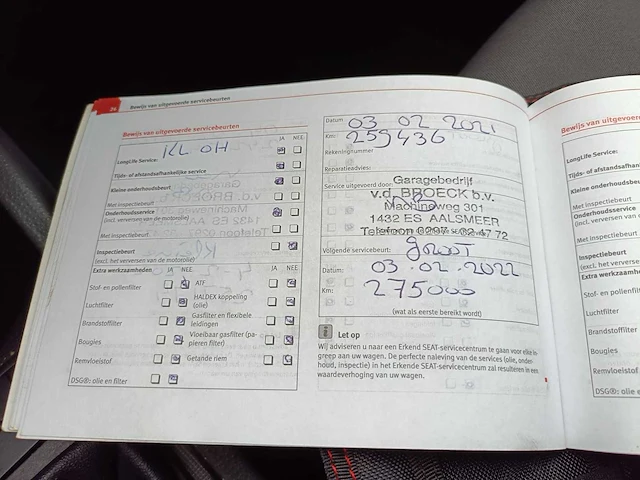 26 Bewijs van uitgevoerde servicebeurten
Bewijs van uitgevoerde servicebeurten
JA NEE
KL OH
LongLife Service:
Tijds- of afstandsafhankelijke service
Kleine onderhoudsbeurt
Met inspectiebeurt
Onderhoudsservice
(incl. verversen van de motorolie)
Met inspectiebeurt
Inspectiebeurt
(excl. het verversen van de motorolie)
Extra werkzaamheden JA NEE JA NEE
Stof- en pollenfilter ATF
Luchtfilter HALDEX koppeling
(olie)
Brandstoffilter Gasfilter en flexibele
leidingen
Bougies Vloeibaar gasfilter (pa-
pieren filter)
Remvloeistof Getande riem
DSG®: olie en filter
Datum 03 02 2021
Km: 259436
Rekeningnummer
Reparatieadvies:
Service uitgevoerd door:
Garagebedrijf
v.d. BROECK b.v.
Machineweg 301
1432 ES AALSMEER
Telefoon 0297 - 32 47 72
Volgende servicebeurt: groot
Datum: 03.02.2022
Km: 275003
(wat als eerste bereikt wordt)
Let op
Wij adviseren u naar een Erkend SEAT-servicecentrum te gaan voor elke in-
greep aan uw wagen. De perfecte naleving van de services (olie, onder-
houd, inspectie) in het Erkende SEAT-servicecentrum zal resulteren in een
waardeverhoging van uw wagen.
Bewijs van uitgevoerde
LongLife Service:
Tijds- of afstandsafhankelijke
Kleine onderhoudsbeurt
Met inspectiebeurt
Onderhoudsservice
(incl. verversen van de
Met inspectiebeurt
Inspectiebeurt
(excl. het verversen
Extra werkzaamheden
Stof- en pollenfilter
Luchtfilter
Brandstoffilter
Bougies
Remvloeistof
DSG®: olie en filter